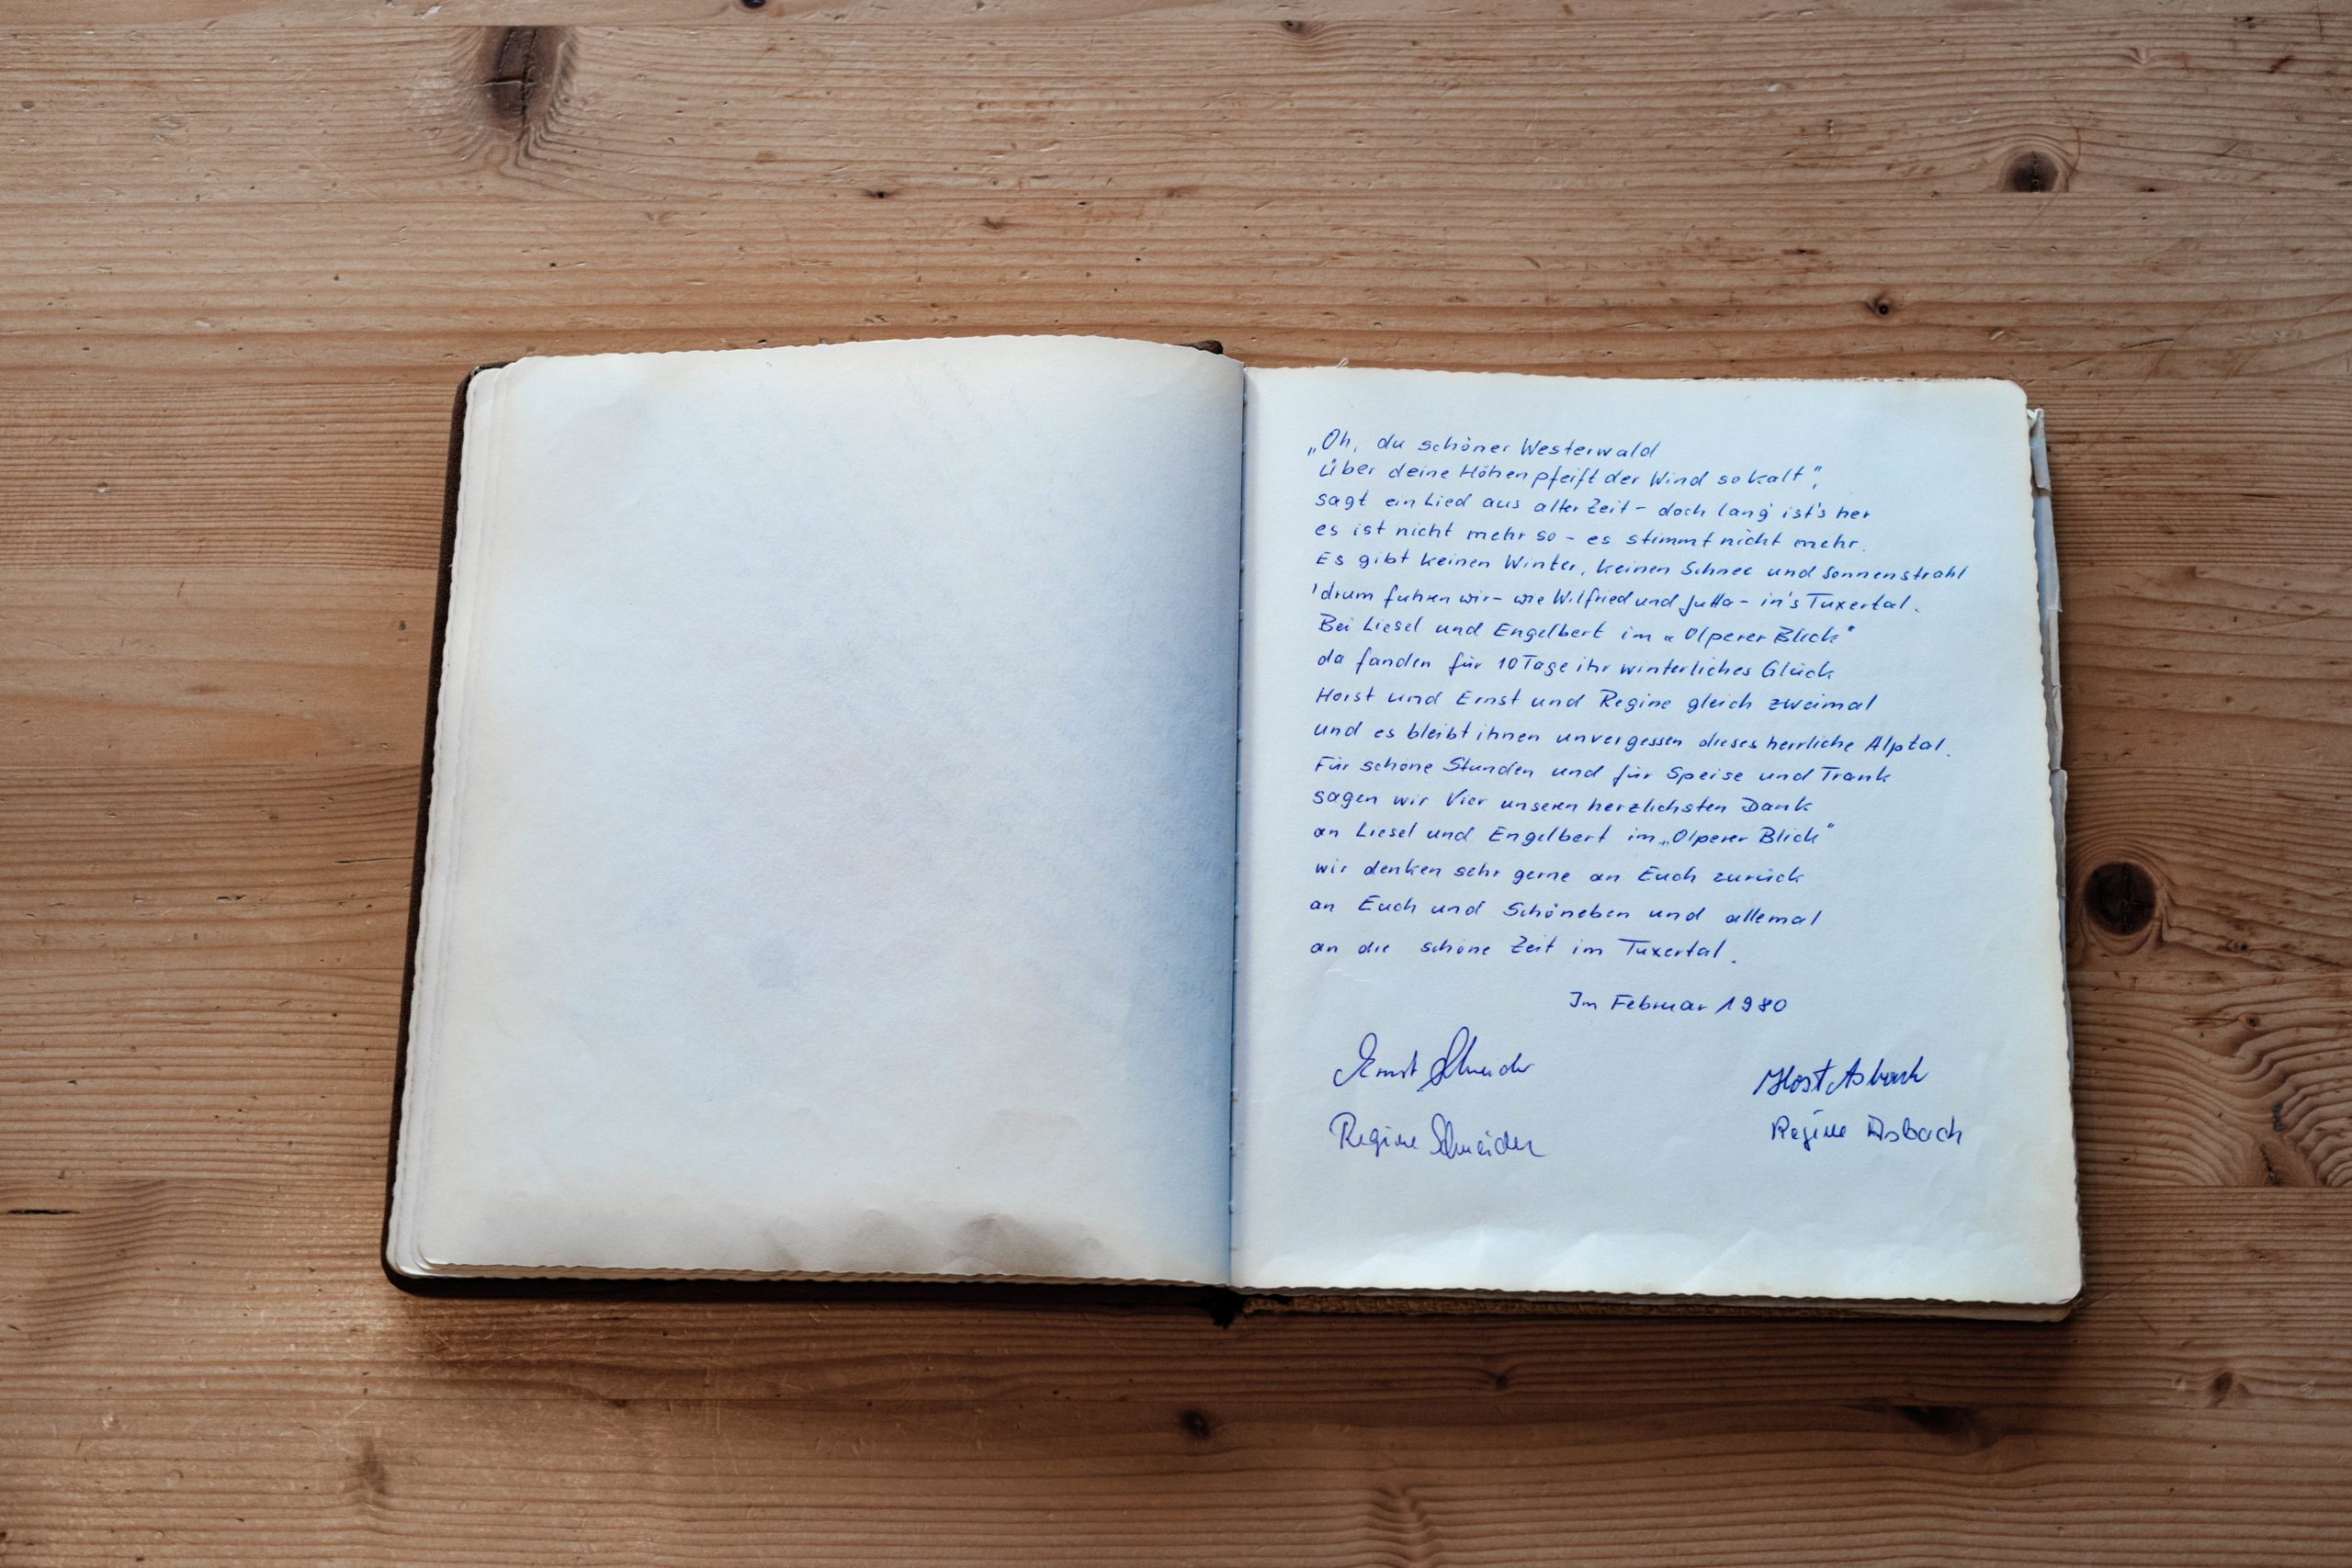 „Oh, du schöner Westerwald
über deine Höhen pfeift der Wind so kalt",
sagt ein Lied aus alter Zeit - doch lang ist's her
es ist nicht mehr so - es stimmt nicht mehr.
Es gibt keinen Winter, keinen Schnee und Sonnenstrahl
'drum fuhren wir - wie Wilfried und Jutta - in's Tuxertal.
Bei Liesel und Engelbert im „Olperer Blick"
da fanden für 10 Tage ihr winterliches Glück
Horst und Ernst und Regine gleich zweimal
und es bleibt ihnen unvergessen dieses herrliche Alptal.
Für schöne Stunden und für Speise und Trank
sagen wir Vier unseren herzlichsten Dank
an Liesel und Engelbert im „Olperer Blick"
wir denken sehr gerne an Euch zurück
an Euch und Schöneben und allemal
an die schöne Zeit im Tuxertal.
Im Februar 1980
Ernst Schneider
Horst Asbach
Regine Schneider
Regine Asbach